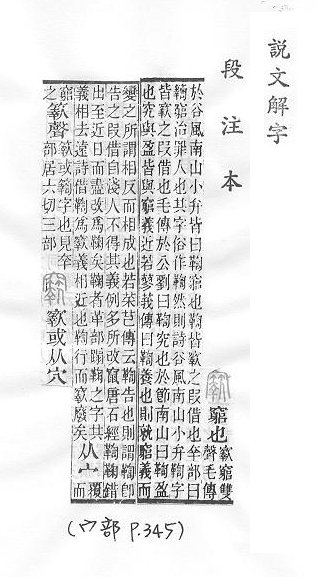 說文解字
段注本
窮也
窮雙
聲毛傳
於谷風南山小弁皆曰鞠窮也鞠皆𡫬之叚借也㚔部曰
窮治罪人也其字俗作鞫然則詩谷風南山小弁鞠字
皆𡫬之叚借也毛傳於公劉曰鞫究也於節南山曰鞠盈
也究與盈皆與窮義近若蓼莪傳曰鞠養也則就窮義而
變之所謂相反而相成也若采芑傳云鞠告也則謂鞠卽
告之叚借自淺人不得其義例多所改竄唐石經鞠鞫錯
出至近日而盡改爲鞫矣鞠者革部蹋鞠之字其
義相去遠詩借鞠爲𡫬義相近也鞠行而𡫬廢矣
从宀
覆而
窮之
聲
或
字也見㚔
部居六切三部
𡫬或从穴
(宀部 P.345)